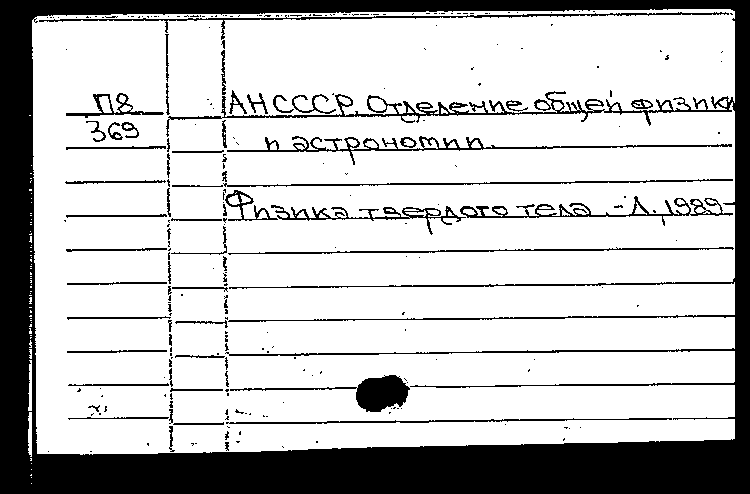 П8
369
АН СССР. Отделение общей физики
и астрономии.
Физика твердого тела. - Л., 1989-